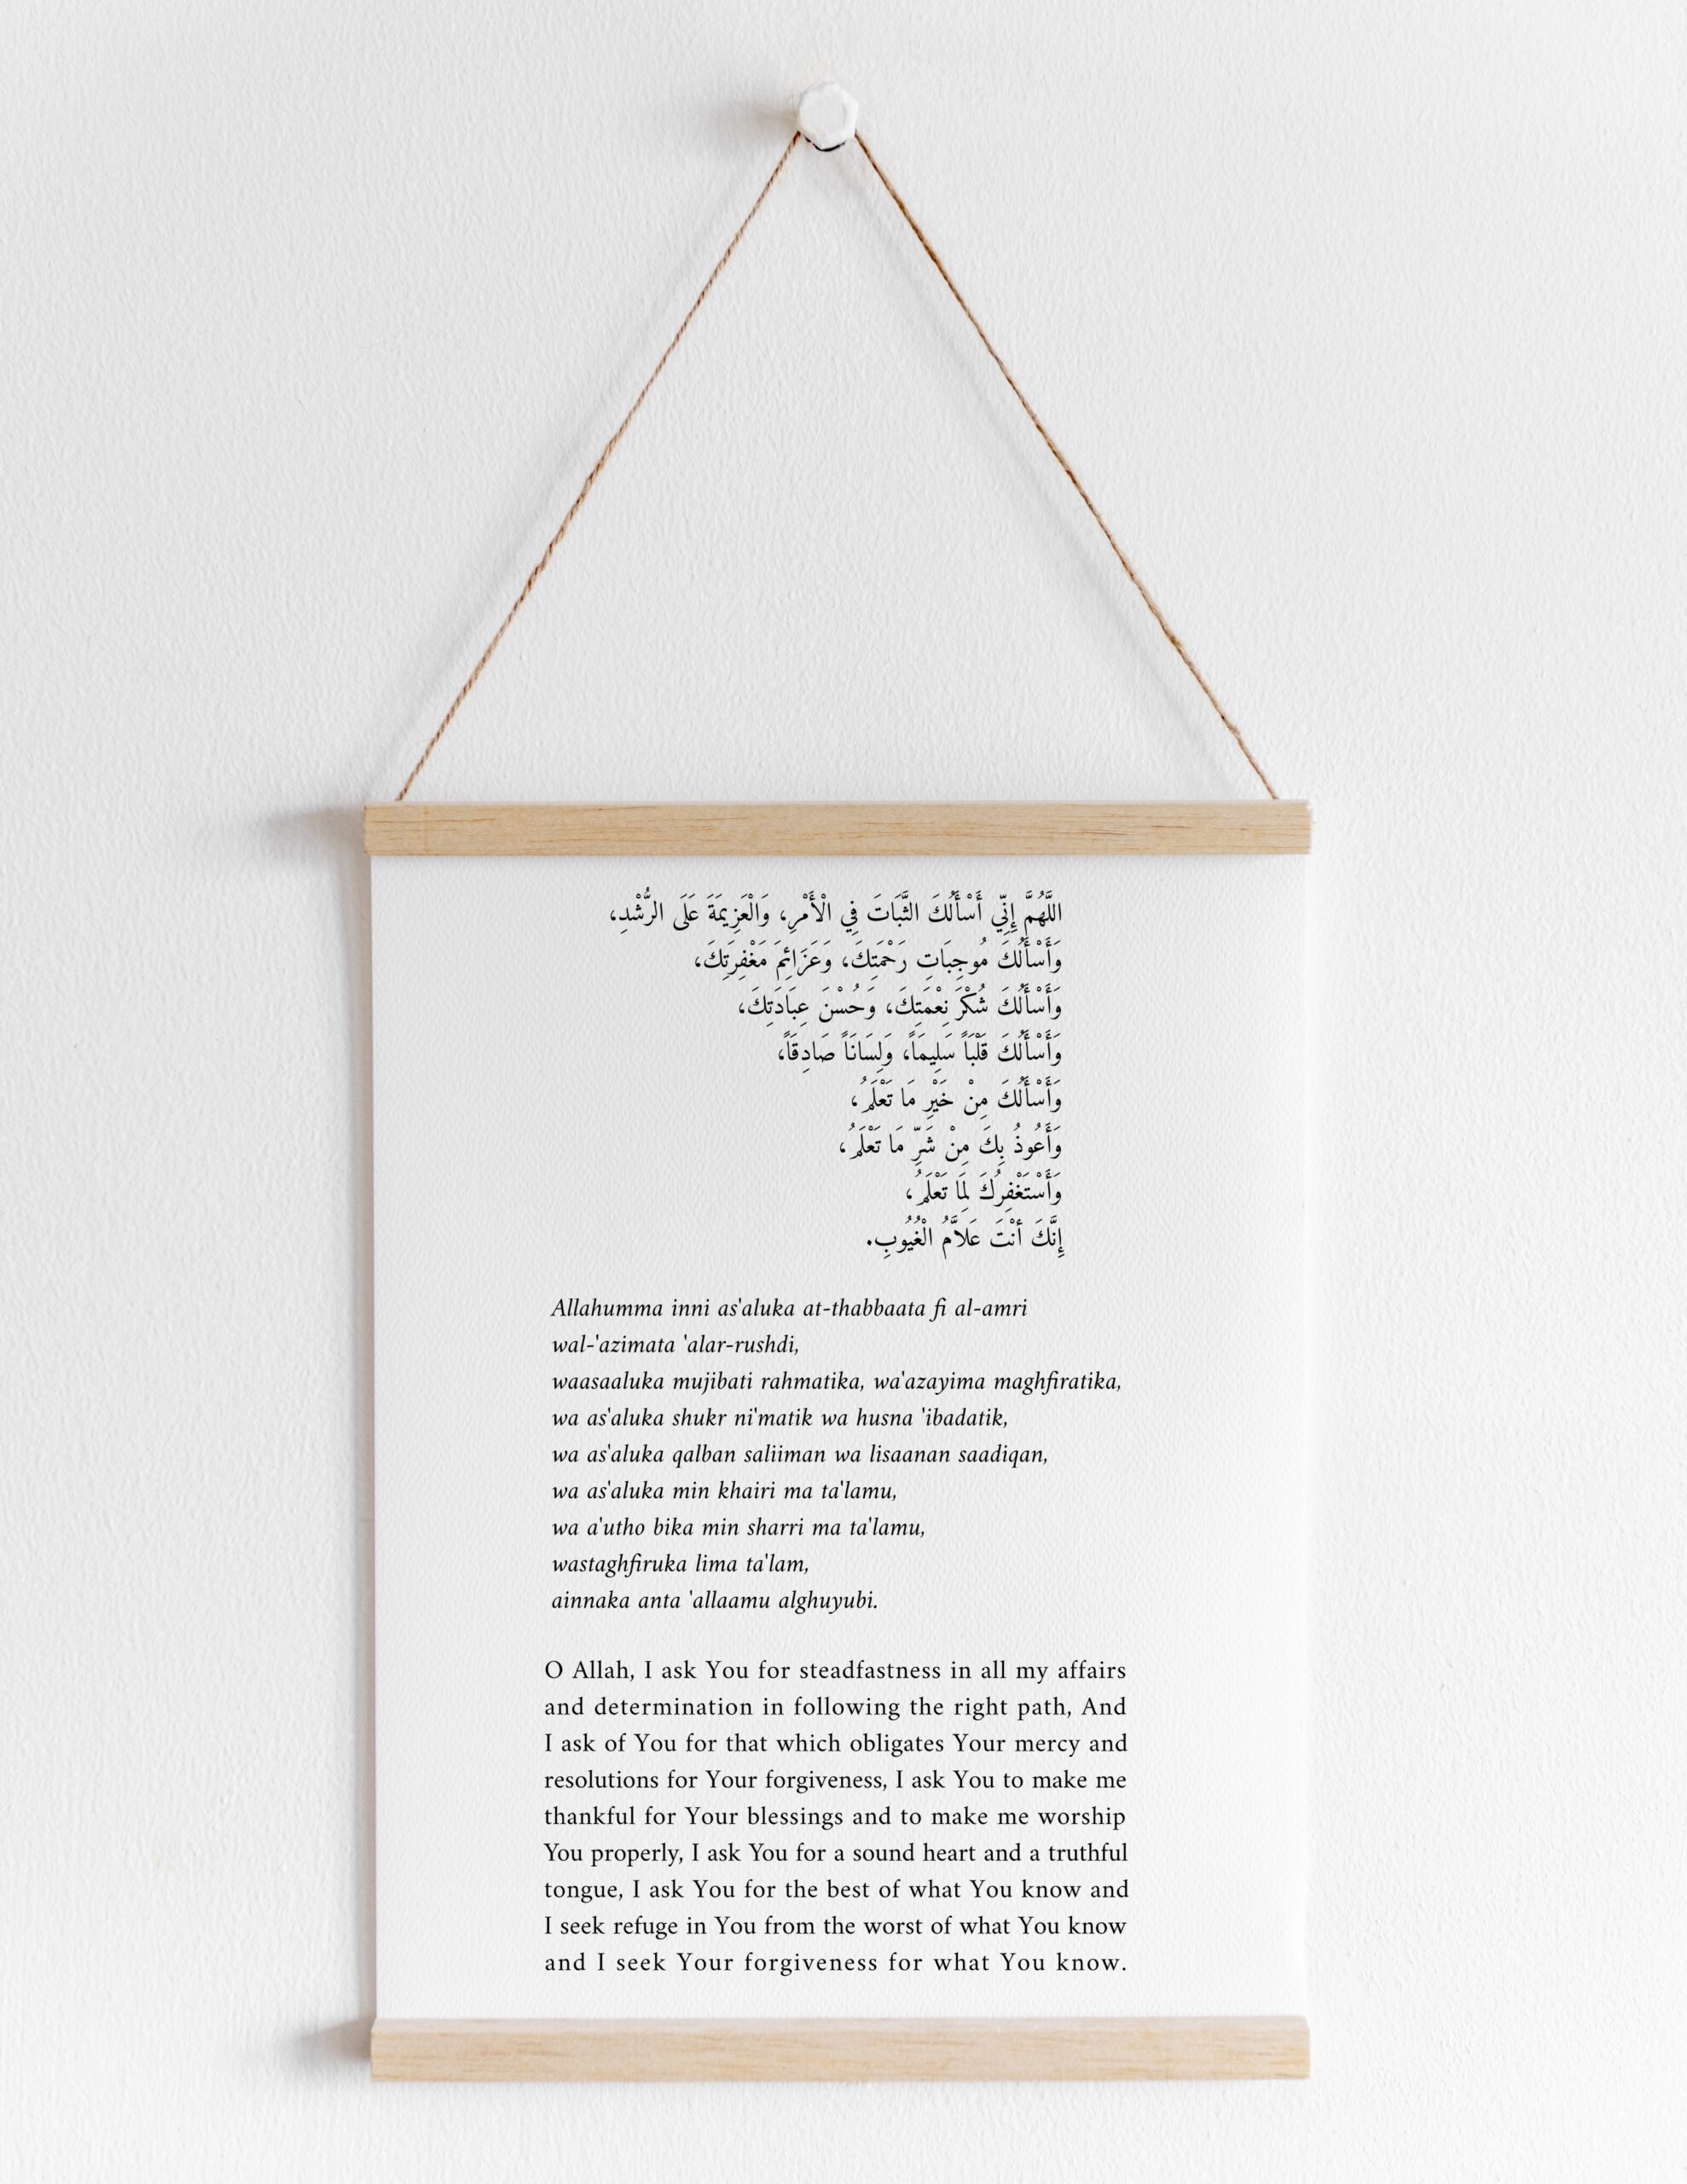 اللَّهُمَّ إِنِّي أَسْأَلُكَ الثَّبَاتَ فِي الْأَمْرِ، وَالْعَزِيمَةَ عَلَى الرُّشْدِ،
وَأَسْأَلُكَ مُوجِبَاتِ رَحْمَتِكَ، وَعَزَائِمَ مَغْفِرَتِكَ،
وَأَسْأَلُكَ شُكْرَ نِعْمَتِكَ، وَحُسْنَ عِبَادَتِكَ،
وَأَسْأَلُكَ قَلْبَاً سَلِيمَاً، وَلِسَانَاً صَادِقَاً،
وَأَسْأَلُكَ مِنْ خَيْرِ مَا تَعْلَمُ،
وَأَعُوذُ بِكَ مِنْ شَرِّ مَا تَعْلَمُ،
وَأَسْتَغْفِرُكَ لِمَا تَعْلَمُ،
إِنَّكَ أنْتَ عَلاَّمُ الْغُيُوبِ.
Allahumma inni as'aluka at-thabbaata fi al-amri
wal-'azimata 'alar-rushdi,
waasaaluka mujibati rahmatika, wa'azayima maghfiratika,
wa as'aluka shukr ni'matik wa husna 'ibadatik,
wa as'aluka qalban saliiman wa lisaanan saadiqan,
wa as'aluka min khairi ma ta'lamu,
wa a'utho bika min sharri ma ta'lamu,
wastaghfiruka lima ta'lam,
ainnaka anta 'allaamu alghuyubi.
O Allah, I ask You for steadfastness in all my affairs
and determination in following the right path, And
I ask of You for that which obligates Your mercy and
resolutions for Your forgiveness, I ask You to make me
thankful for Your blessings and to make me worship
You properly, I ask You for a sound heart and a truthful
tongue, I ask You for the best of what You know and
I seek refuge in You from the worst of what You know
and I seek Your forgiveness for what You know.